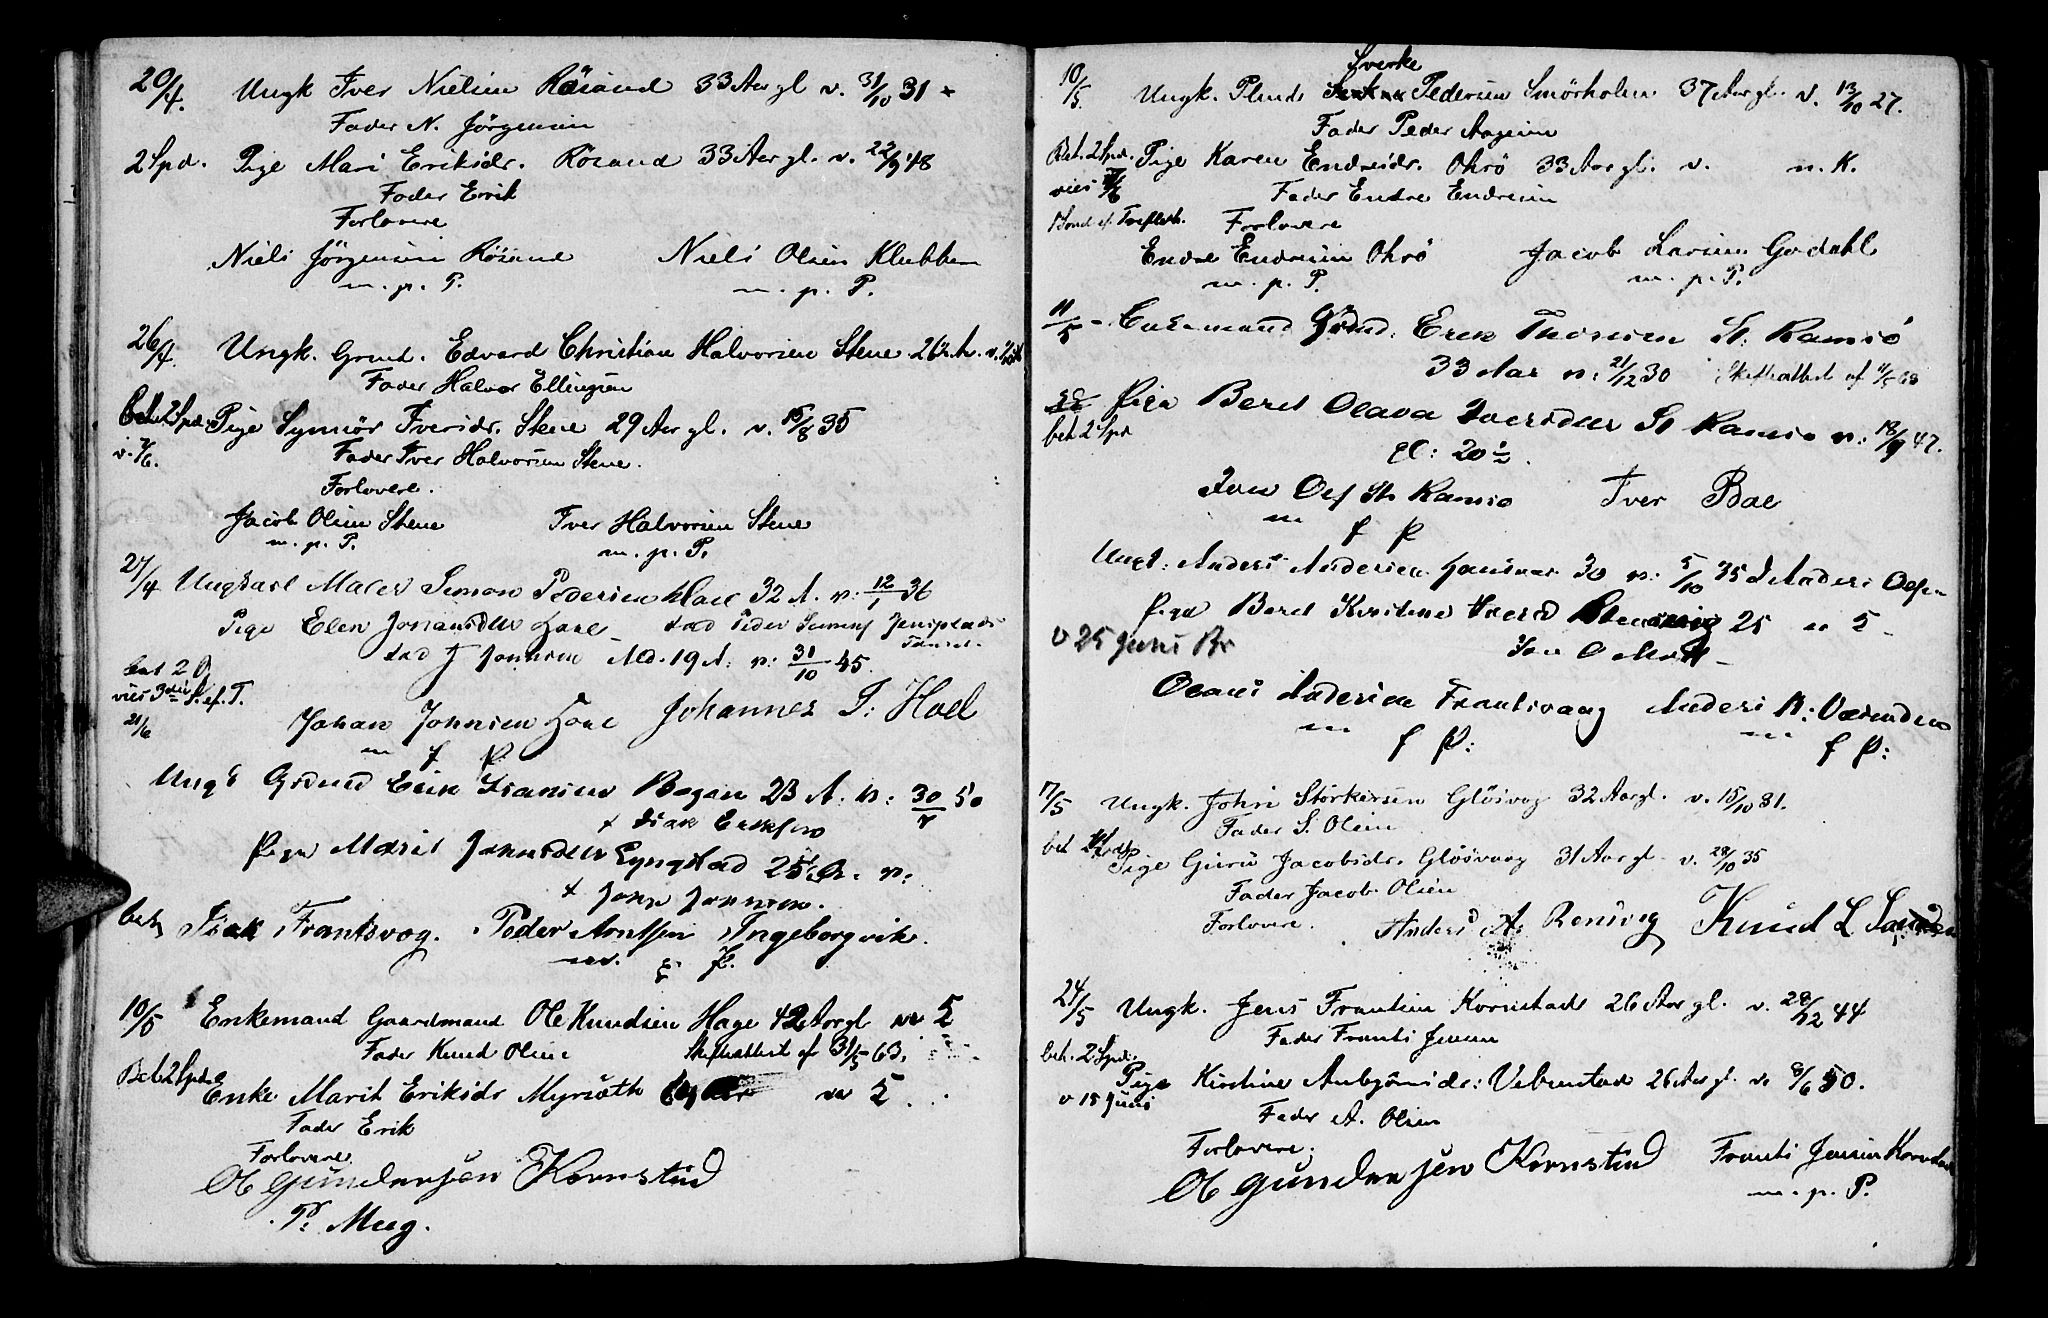 20/4. Ungk Iver Nielsen Rösand 33 Aar gl v. 31/10 31
Fader N. Jörgensen
2 Spd. Pige Mari Eriksdr. Rösand 33 Aar gl. v. 22/9 48
Fader Erik
Forlovere
Niels Jörgensen Rösand Niels Olsen Klubben
m. p. P. m. p. P.
26/4. Ungk. Grmd. Edvard Christian Halvorsen Stene 26 A. v.
Fader Halvor Ellingsen
bet. 2 Spd. Pige Synnör Iversdr. Stene 29 Aar gl. v. 15/8 35
v. 7/6. Fader Iver Halvorsen Stene.
Forlovere.
Jacob Olsen Stene Iver Halvorsen Stene
m. p. P. m. p. P.
27/4 Ungkarl Maler Simon Pedersen Hoel 32 A. v: 12/1 36
Pige Elen Johansdtr Hoel fad Peder
fad J Johnsen Ald. 19 A: v: 31/10 45.
bet 2
vies 3die P. ef. T.
21/6
Johan Johnsen Hoel Johannes P: Hoel
m f P
Ungk Grdmd Erik Isaksen Bogen 23 A: v: 30/7 50
f Isak Eriksen
Pige Marit Johnsdtr Lyngstad 25 Ar. v:
f John Johnsen.
bet Isak Frantsvog. Peder Arntsen Ingeborgvik.
m. f. P.
10/5 Enkemand Gaardmand Ole Knudsen Hage 42 Aar gl v 5
Fader Knud Olsen Skifteattest af 31/5 63.
Bet. 2 Spd. Enke Marit Eriksdr Myrsæth v 5.
Fader Erik
Forlovere
Ole Gundersen Kornstad
P. Mug.
Sverke
10/5. Ungk. Plmd. Pedersen Smörholm 37 Aar gl. v. 13/10 27.
Fader Peder Aagesen
Bet. 2 Spd. Pige Karen Endresdr. Ohrö 33 Aar gl. v. n. K.
vies 7/6 Fader Endre Endresen
Forlovere
Endre Endresen Ohrö Jacob Larsen Godahl
m. p. P. m. p. P.
11/5 - Enkemand Grdmd. Erik Thorsen St. Ramsö
33 Aar v: 21/12 30 Skifteattest af 11/5 68
Pige Beret Olava Iversdtr St Ramsö v: 18/9 47.
bet 2 Spd gl: 20 1/2.
Iver Ols St Ramsö Iver Boe
m f P
Ungk: Anders Andersen 30 v: 5/10 35 f Anders Olsen
Pige Beret Kirstine 25 v 5
v 25 Juni Br
Olaus Andersen Frantsvaag Anders B:Værnden
m f P: m f P:
17/5 Ungk. John Störkersen Glösvog 32 Aar gl. v. 15/10 31.
Fader S. Olsen
bet Pige Guru Jacobsdr. Glösvaag 31 Aar gl. v. 28/10 35
Fader Jacob Olsen
Forlovere. Anders A. Rensvig Knud L
24/5 Ungk. Jens Frantsen Kornstad 26 Aar gl. v. 28/12 44
Fader Frants Jensen
bet. 2 Spd. Pige Kirstine Asbjörnsdr: Vebenstad 26 Aar gl. v. 8/6 50.
v 15 Juni Fader A. Olsen
Forlovere.
Ole Gundersen Kornstad Frants Jensen Kornstad
m. p. P.